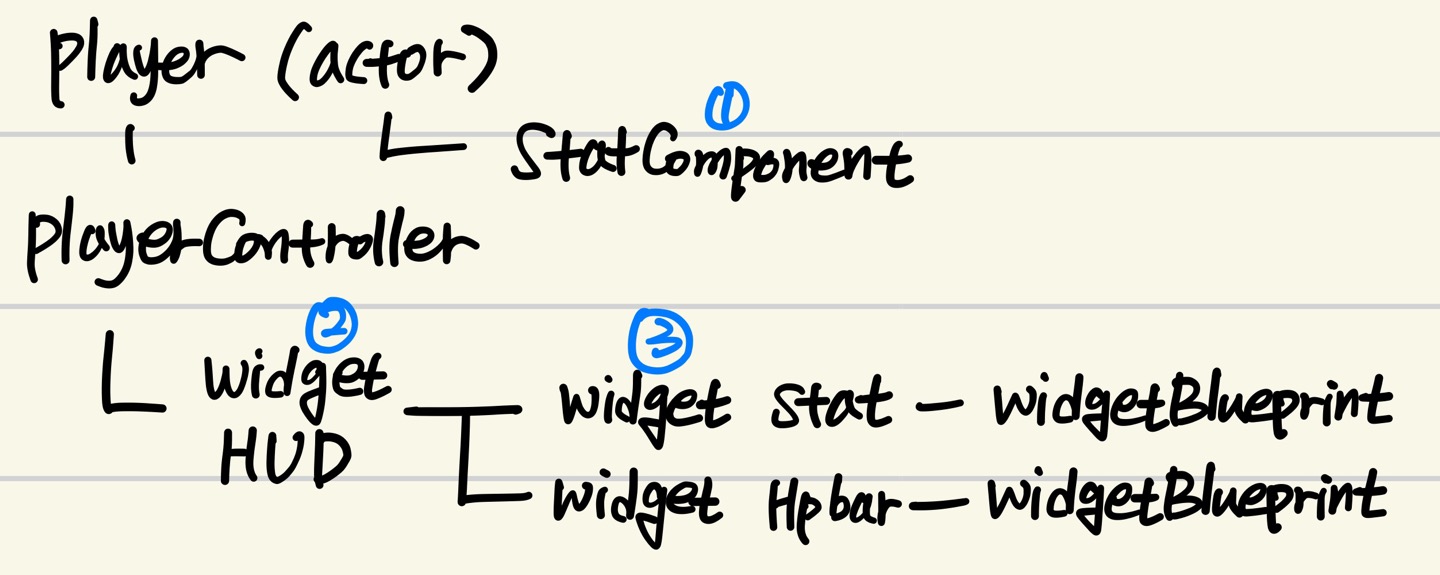 player (actor)
①
StatComponent
playerController
② ③
widget widget stat - widgetBlueprint
HUD
widget Hpbar - widgetBlueprint